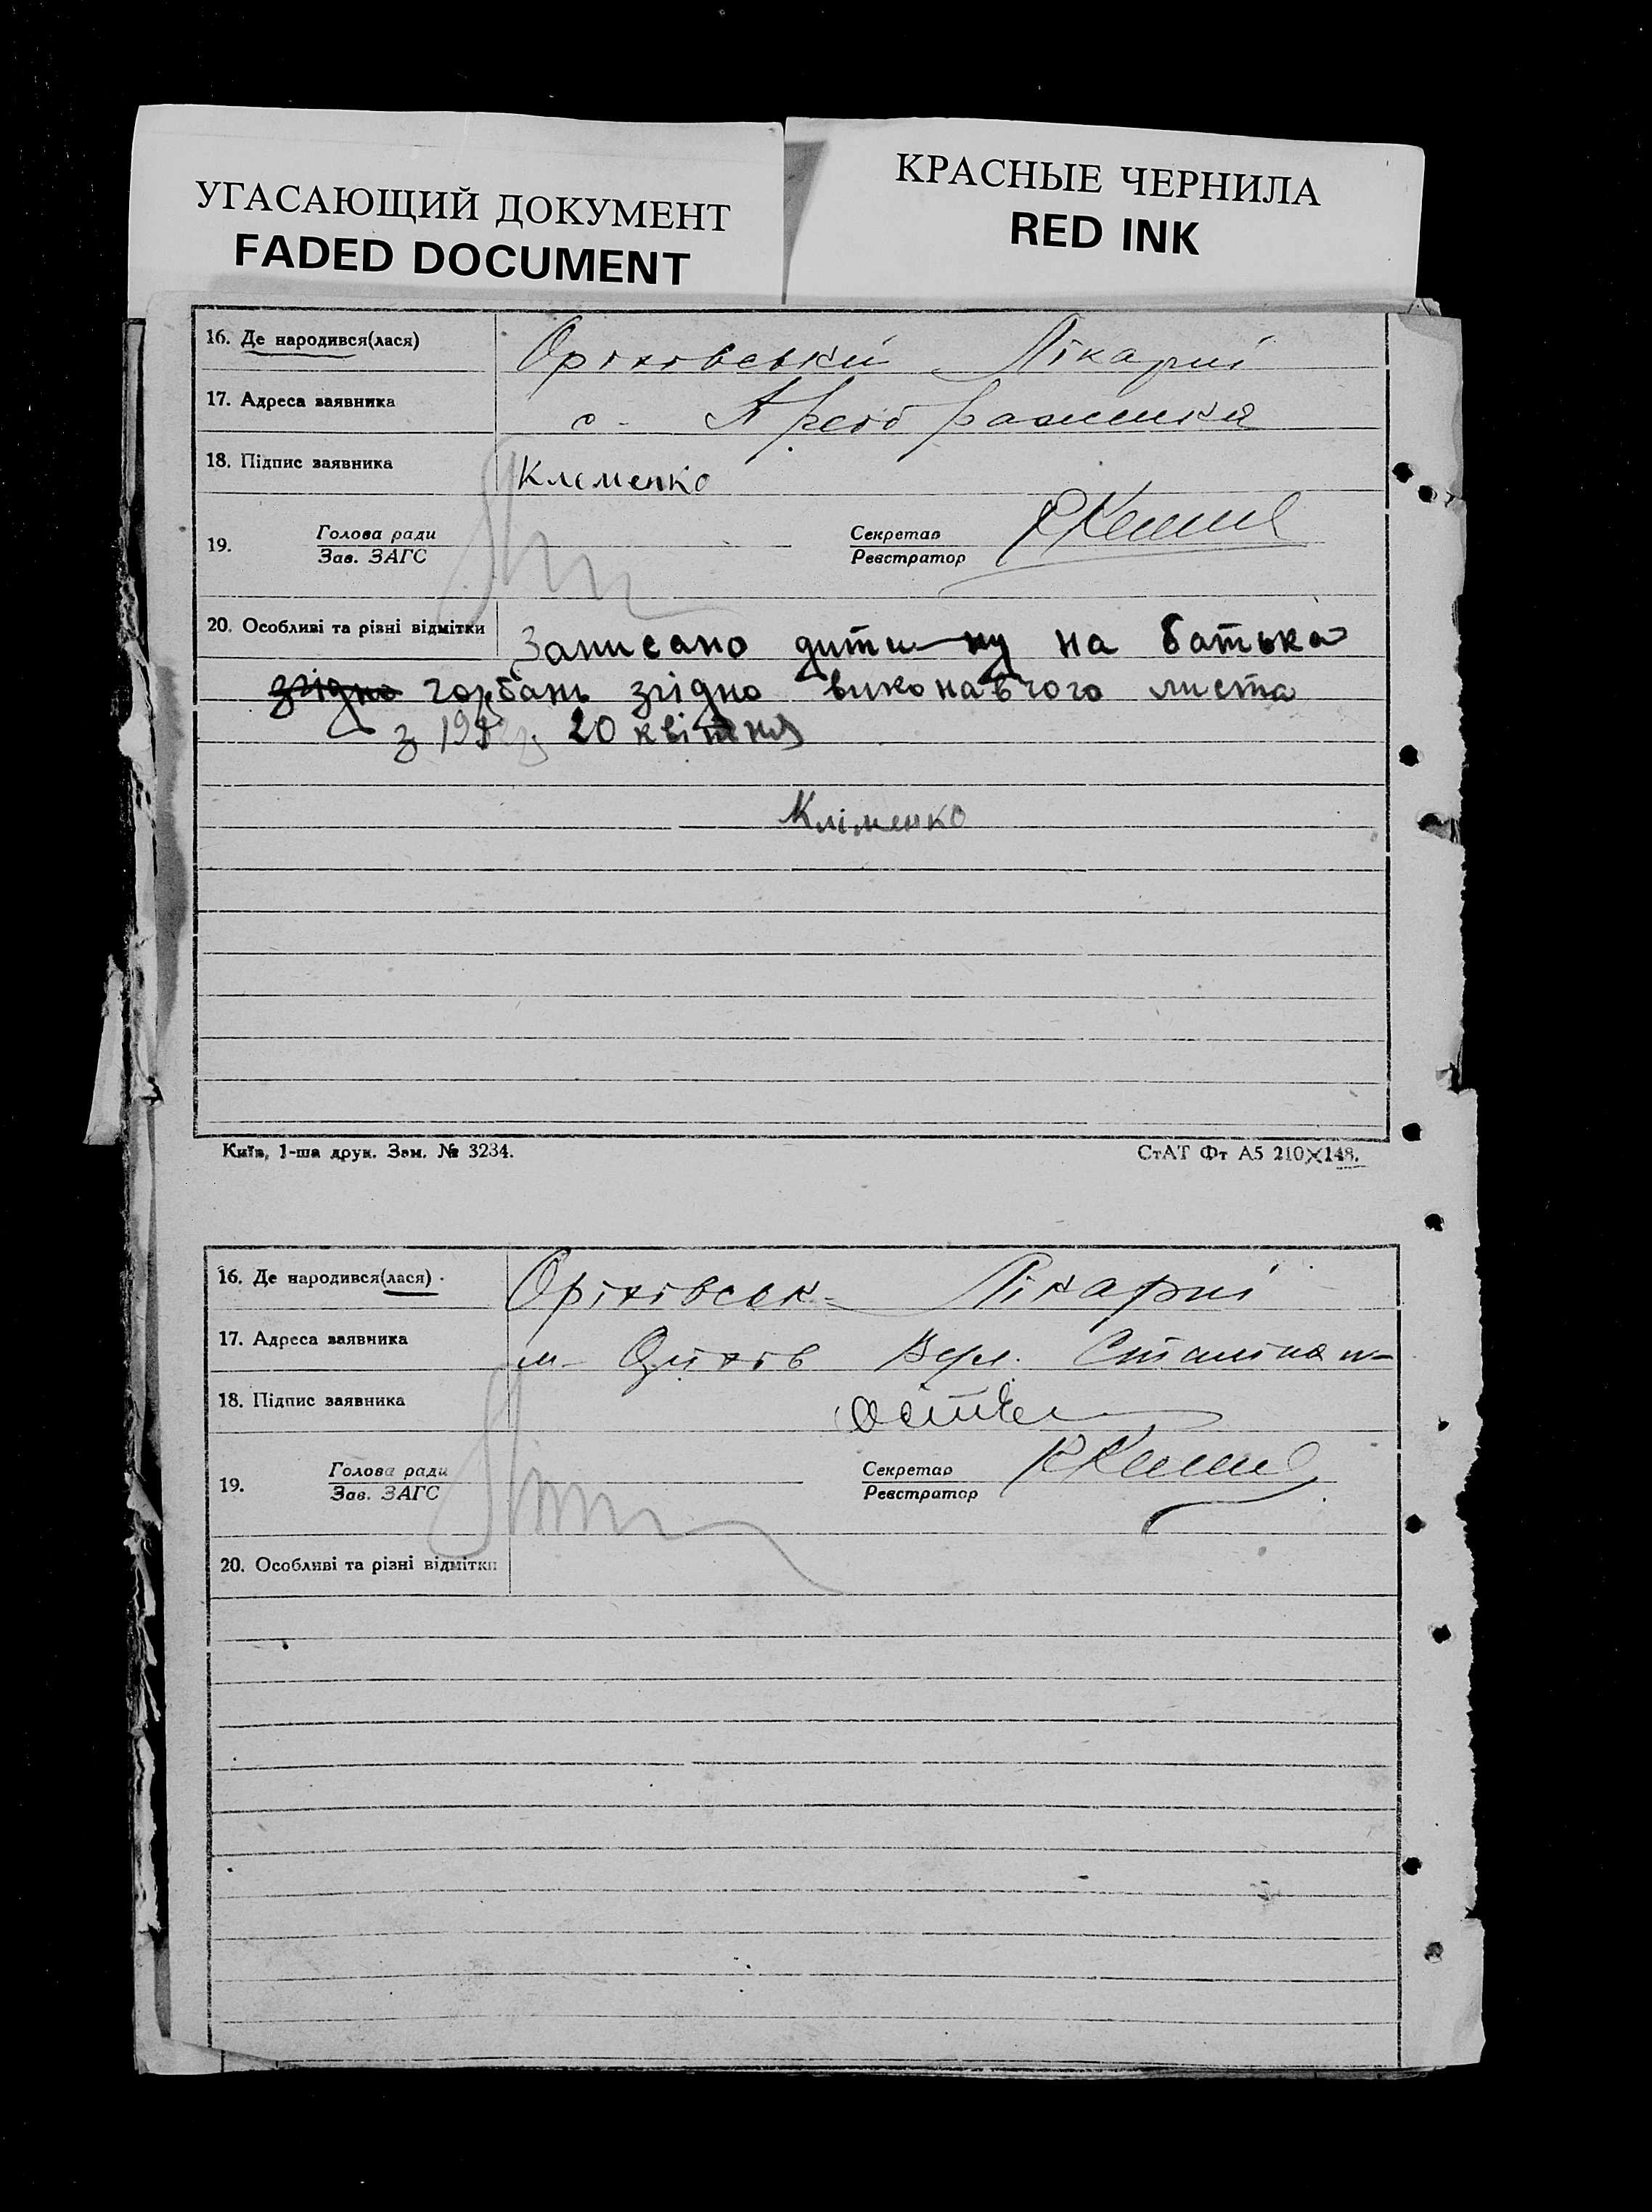 УГАСАЮЩИЙ ДОКУМЕНТ
FADED DOCUMENT
КРАСНЫЕ ЧЕРНИЛА
RED INK
16. Де народився(лася) Оріхівській Лікарні
17. Адреса заявника с. Преображенка
18. Підпис заявника Клєменко
19. Голова ради
Зав. ЗАГС
Секретар
Реєстратор
20. Особливі та різні відмітки Записано дитину на батька
згідно горбань згідно виконавчого листа
з 20 квітня
Кліменко
Київ, 1-ша друк. Зам. № 3234.
СтАТ Фт А5 210×148.
16. Де народився(лася) Оріхівськ- Лікарні
17. Адреса заявника м- Оріхів Вул. Сталіна
18. Підпис заявника
19. Голова ради
Зав. ЗАГС
Секретар
Реєстратор
20. Особливі та різні відмітки